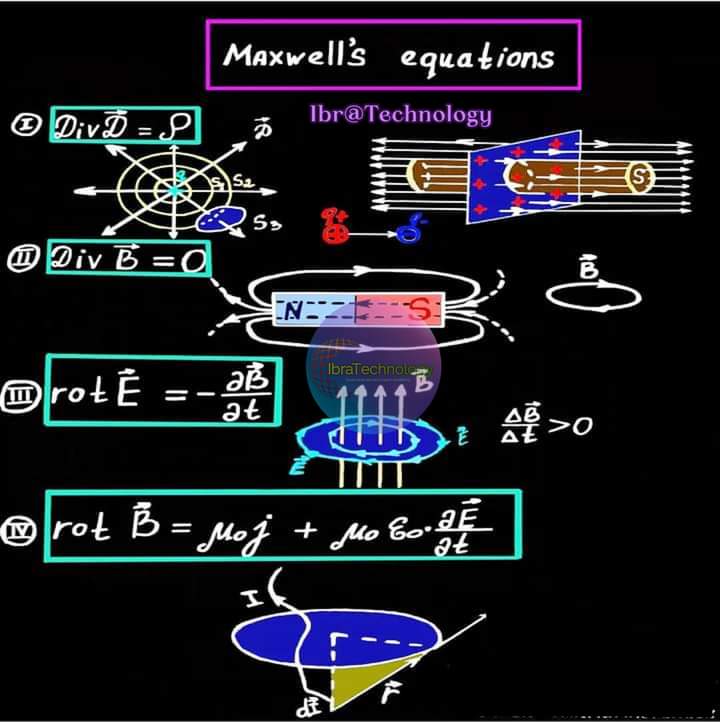 Maxwell's equations
Ibr@Technology
I Div D⃗ = ρ
D⃗
q S₁ S₂
S₃
+ + +
+ + +
+ + +
S
q+ q-
II Div B⃗ = 0
B⃗
N S
IbraTechnology
III rot E⃗ = - ∂B⃗/∂t
B⃗
E⃗
E⃗
ΔB⃗/Δt > 0
IV rot B⃗ = μ₀j + μ₀ε₀·∂E⃗/∂t
I
dl⃗
r⃗